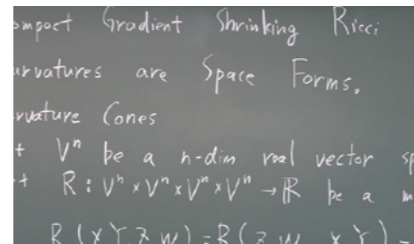 ompact Gradient Shrinking Ricci
urvatures are Space Forms.
rvature Cones
t Vⁿ be a n-dim real vector sp
t R : Vⁿ × Vⁿ × Vⁿ × Vⁿ → ℝ be a m
R(X Y, Z W) = R(Z W, X Y) =